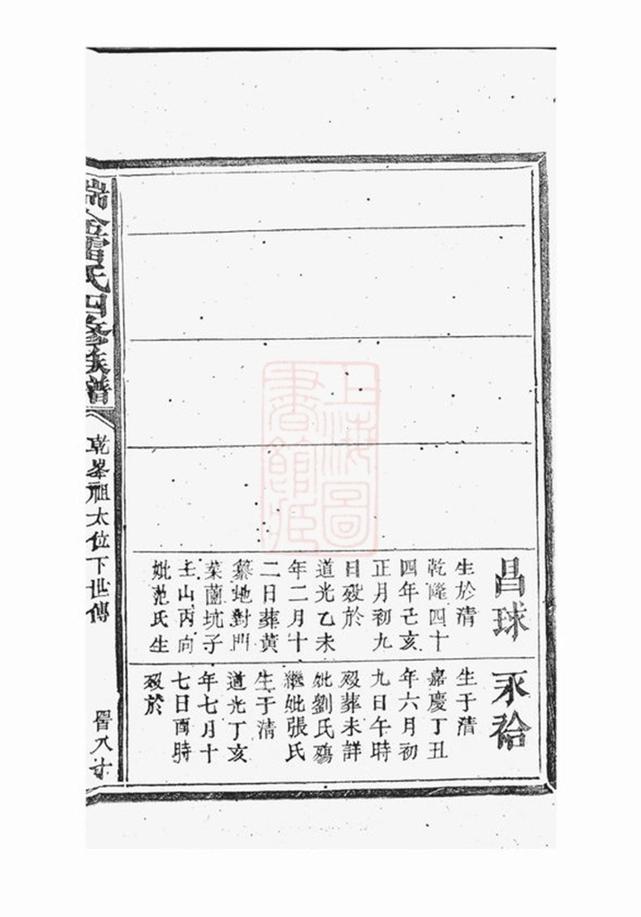 昌球
生於清
乾隆四十
四年己亥
正月初九
日歿於
道光乙未
年二月十
二日葬黄
地對門
菜蘭坑子
山丙向
妣范氏生
永
生于清
嘉慶丁丑
年六月初
九日午時
歿葬未詳
妣劉氏殤
繼妣張氏
生于清
道光丁亥
年七月十
七日酉時
歿於
瑞金雷氏四修族譜
乾峯祖太位下世傳
上海圖
書館藏